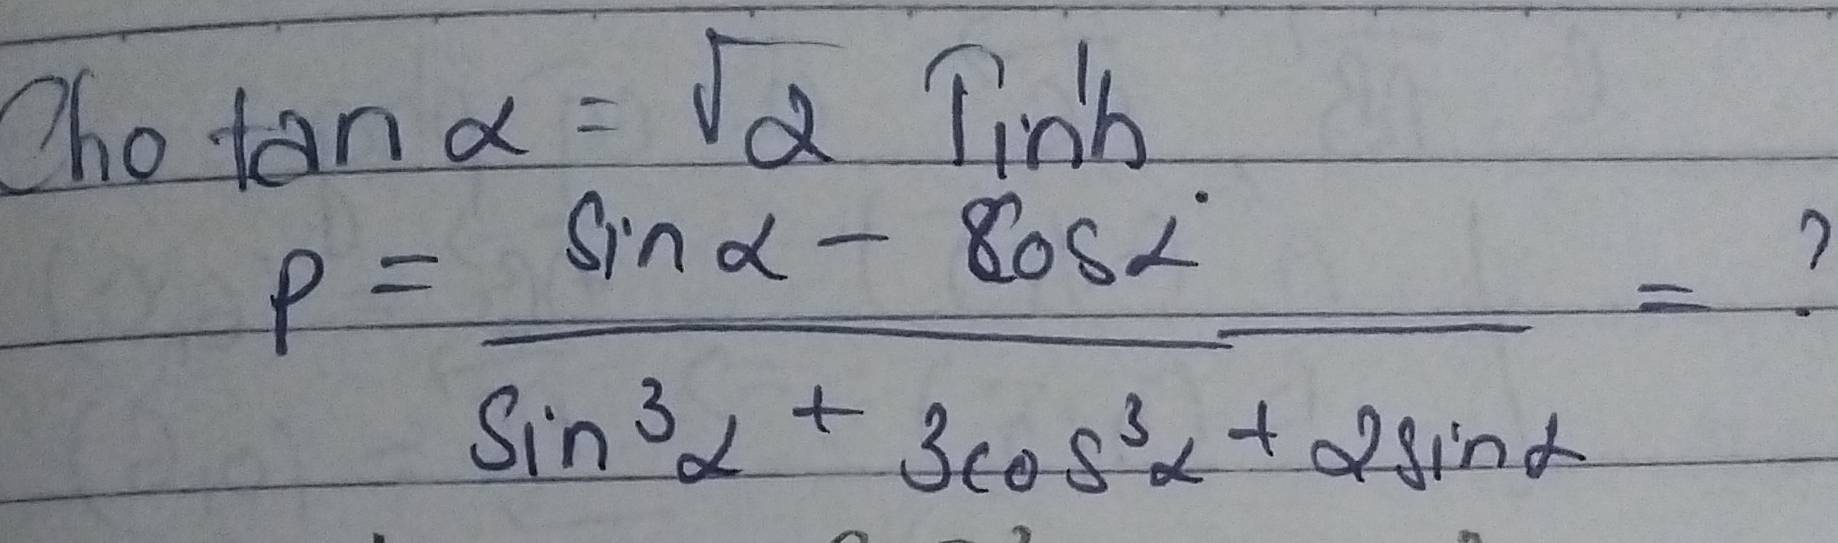 Cho tan α = √2 Tính
P = (sin α - cos α) / (sin³α + 3cos³α + 2sin α) = ?